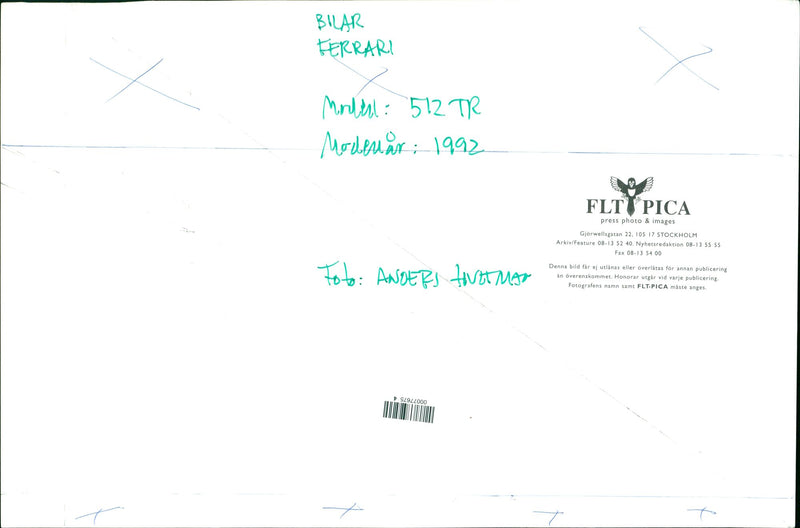 BILAR
FERRARI
Modell: 512 TR
Modellår: 1992
FLT PICA
press photo & images
Gjörwellsgatan 22, 105 17 STOCKHOLM
Arkiv/Feature 08-13 52 40, Nyhetsredaktion 08-13 55 55
Fax 08-13 54 00
Denna bild får ej utlånas eller överlåtas för annan publicering
än överenskommet. Honorar utgår vid varje publicering.
Fotografens namn samt FLT-PICA måste anges.
Foto: ANDERS
00077675 4